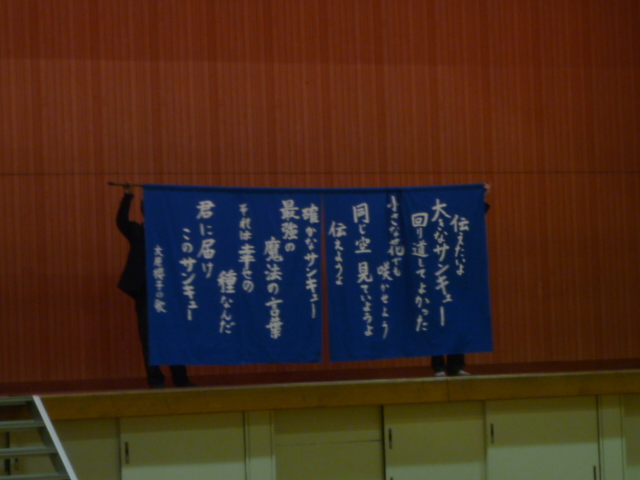 伝えたいよ
大きなサンキュー
回り道してよかった
小さな花でも
咲かせよう
同じ空 見ていようよ
伝えようよ
確かなサンキュー
最強の
魔法の言葉
それは幸せの
種なんだ
君に届け
このサンキュー
大原櫻子の歌